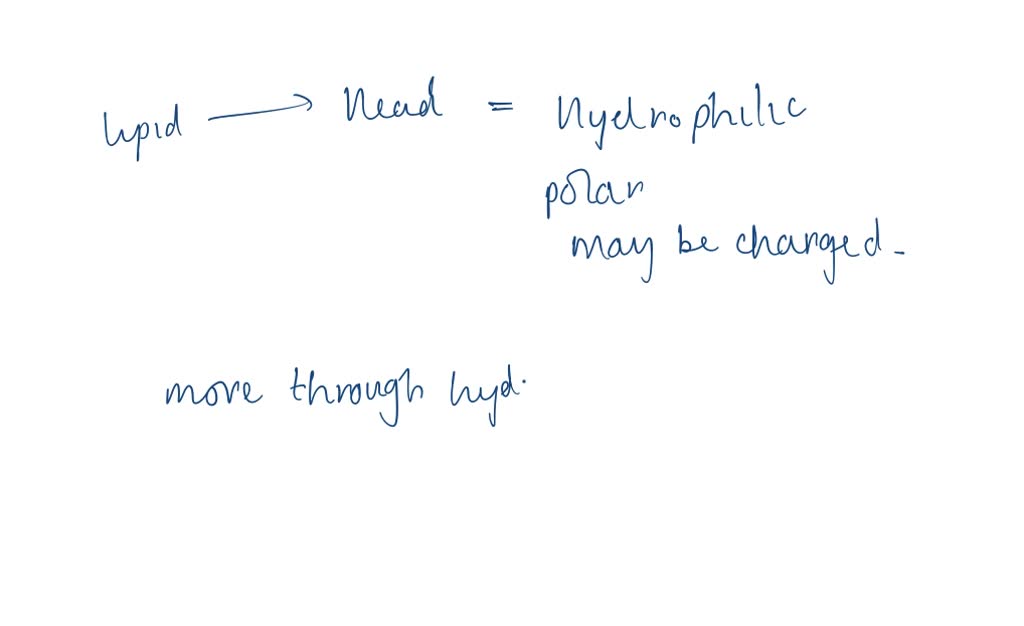 lipid → Head = Hydrophilic
polar
may be charged.
move through hyd.